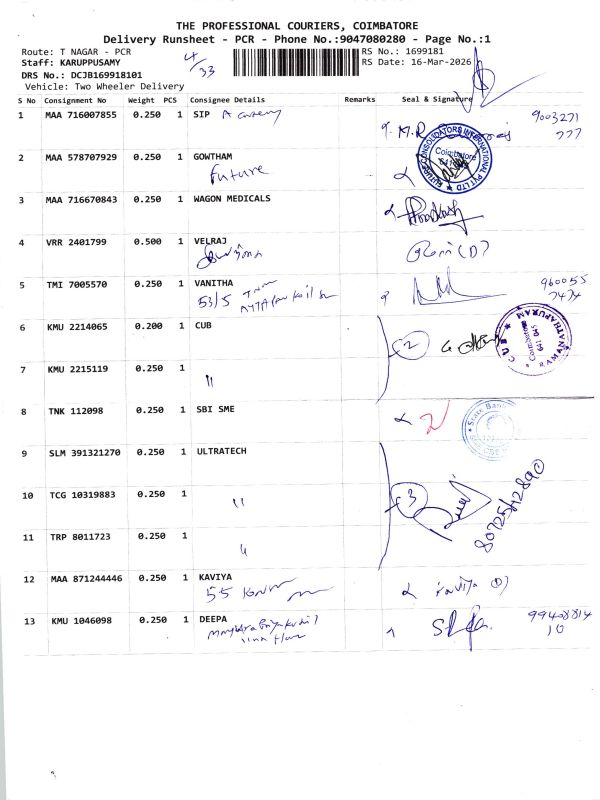 THE PROFESSIONAL COURIERS, COIMBATORE
Delivery Runsheet - PCR - Phone No.:9047080280 - Page No.:1
Route: T NAGAR - PCR
RS No.: 1699181
Staff: KARUPPUSAMY
4/33
RS Date: 16-Mar-2026
DRS No.: DCJB169918101
Vehicle: Two Wheeler Delivery
S No Consignment No Weight PCS Consignee Details Remarks Seal & Signature
1 MAA 716007855 0.250 1 SIP
9003271
777
2 MAA 578707929 0.250 1 GOWTHAM
Future
FUTURE CONSOLIDATORS INTERNATIONAL PVT LTD
Coimbatore
3 MAA 716670843 0.250 1 WAGON MEDICALS
4 VRR 2401799 0.500 1 VELRAJ
5 TMI 7005570 0.250 1 VANITHA
53/5
960055
7474
6 KMU 2214065 0.200 1 CUB
2
CUB
Coimbatore
641 045
RAMANATHAPURAM
7 KMU 2215119 0.250 1
"
8 TNK 112098 0.250 1 SBI SME
State Bank
9 SLM 391321270 0.250 1 ULTRATECH
10 TCG 10319883 0.250 1
"
3
11 TRP 8011723 0.250 1
"
12 MAA 871244446 0.250 1 KAVIYA
55
Kaviya
13 KMU 1046098 0.250 1 DEEPA
99408814
10